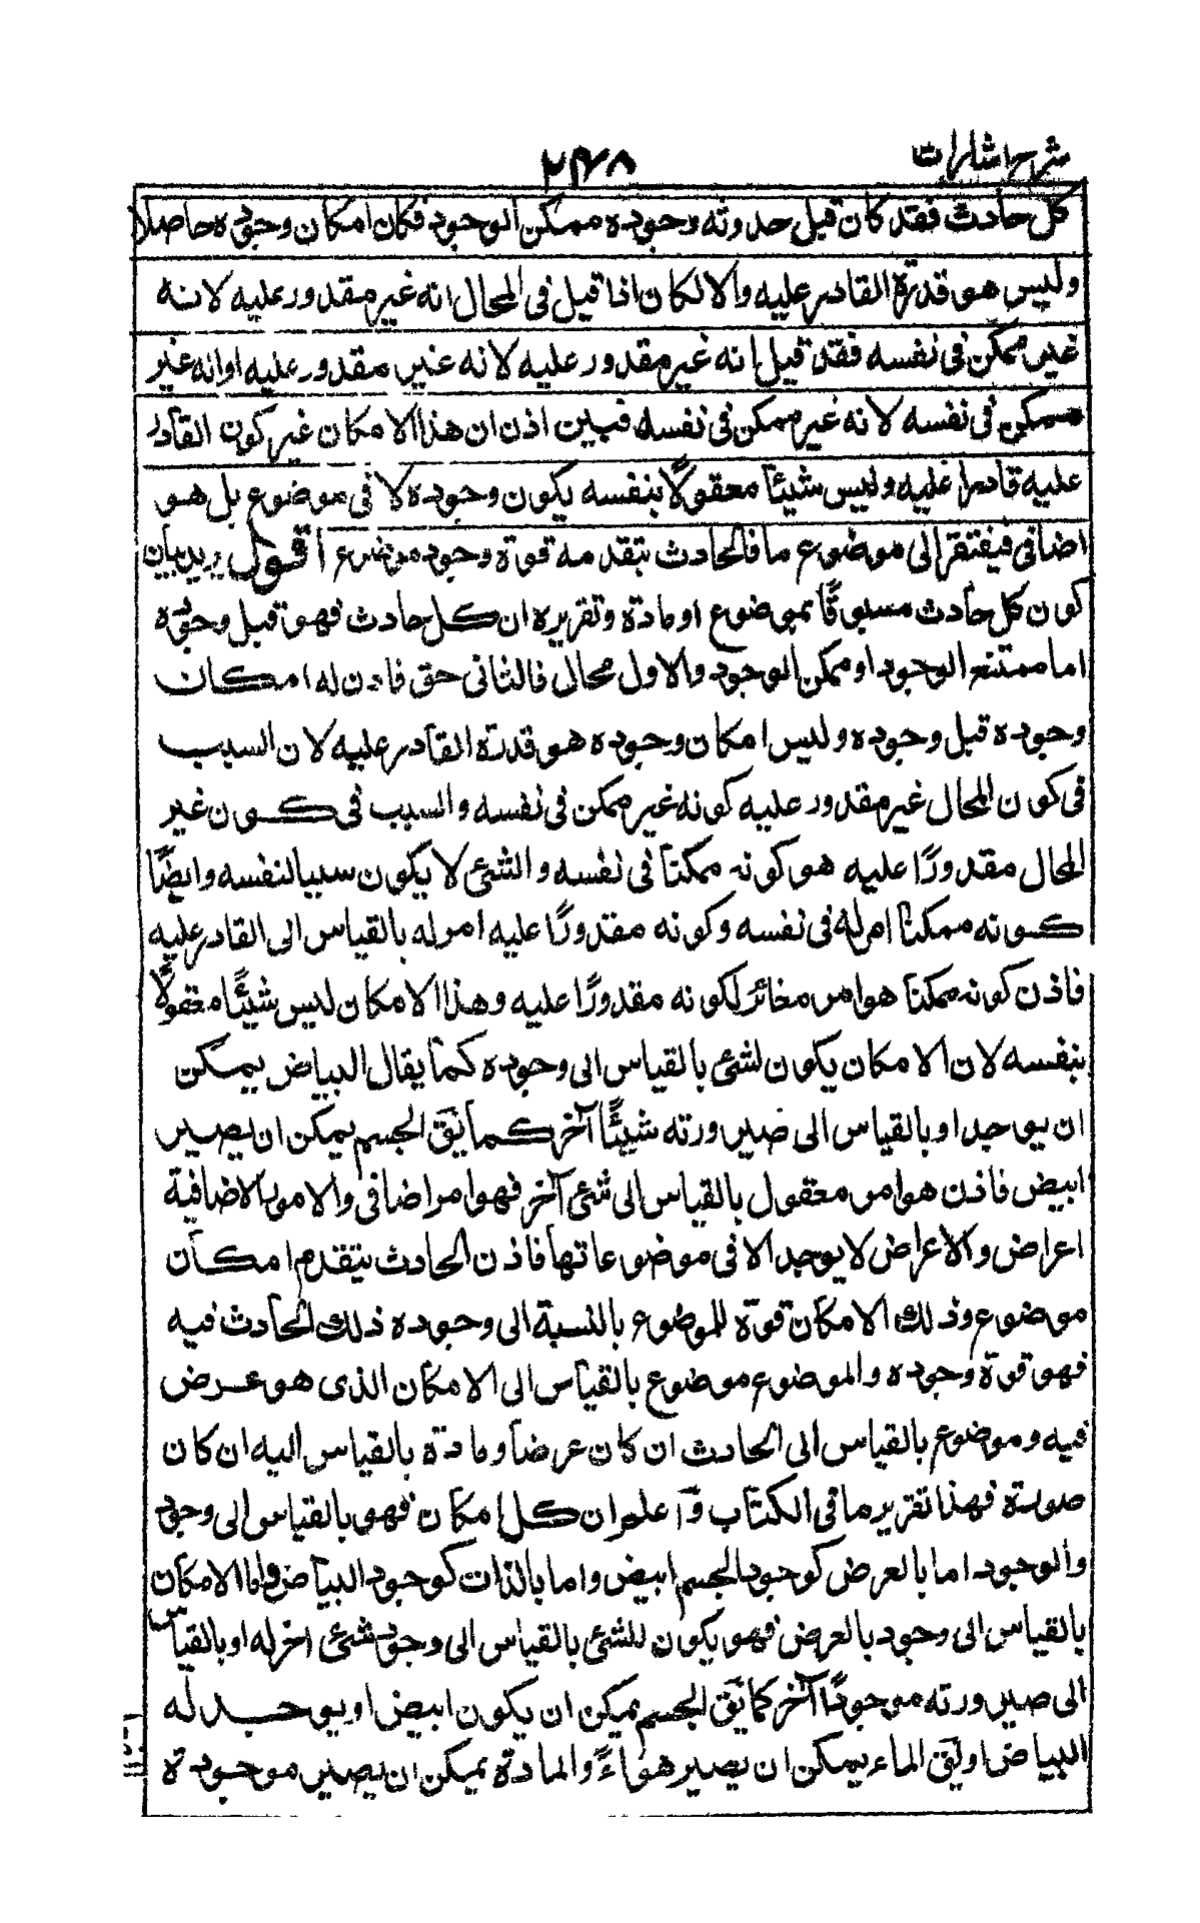 شرح اشارات
٢٤٨
كل حادث فقد كان قبل حدوثه وجوده ممكن الوجود فكان امكان وجوده حاصلا
وليس هو قدرة القادر عليه والا لكان اذا قيل فى المحال انه غير مقدور عليه لانه
غير ممكن فى نفسه فقد قيل انه غير مقدور عليه لانه غير مقدور عليه اوانه غير
ممكن فى نفسه لانه غير ممكن فى نفسه فبين اذن ان هذا الامكان غير كون القادر
عليه قادرا عليه وليس شيئا معقولًا بنفسه يكون وجوده لا فى موضوع بل هو
اضافى فيفتقر الى موضوع ما فالحادث يتقدمه قوة وجود موضوع اقول يريد بيان
كون كل حادث مسبوقًا بموضوع او مادة وتقريره ان كل حادث فهو قبل وجوده
اما ممتنع الوجود او ممكن الوجود والاول محال فالثانى حق فاذن له امكان
وجوده قبل وجوده وليس امكان وجوده هو قدرة القادر عليه لان السبب
فى كون المحال غير مقدور عليه كونه غير ممكن فى نفسه والسبب فى كون غير
المحال مقدورًا عليه هو كونه ممكنا فى نفسه والشئ لا يكون سببا لنفسه وايضًا
كونه ممكنا امر له فى نفسه وكونه مقدورًا عليه امر له بالقياس الى القادر عليه
فاذن كونه ممكنا هو امر مغائر لكونه مقدورًا عليه وهذا الامكان ليس شيئًا معقولًا
بنفسه لان الامكان يكون لشئ بالقياس الى وجوده كما يقال البياض يمكن
ان يوجد او بالقياس الى صيرورته شيئًا آخر كما يق الجسم يمكن ان يصير
ابيض فاذن هو امر معقول بالقياس الى شئ آخر فهو امر اضافى والامور الاضافية
اعراض والاعراض لا يوجد الا فى موضوعاتها فاذن الحادث يتقدم امكان
موضوع وذلك الامكان قوة للموضوع بالنسبة الى وجوده ذلك الحادث فيه
فهو قوة وجوده والموضوع موضوع بالقياس الى الامكان الذى هو عرض
فيه وموضوع بالقياس الى الحادث ان كان عرضا ومادة بالقياس اليه ان كان
صورة فهذا تقرير ما فى الكتاب وآعلم ان كل امكان فهو بالقياس الى وجود
والوجود اما بالعرض كوجود الجسم ابيض واما بالذات كوجود البياض واما الامكان
بالقياس الى وجود بالعرض فهو يكون للشئ بالقياس الى وجود شئ اخر له او بالقياس
الى صيرورته موجودًا آخر كما يق الجسم يمكن ان يكون ابيض او يوجد له
البياض او يق الماء يمكن ان يصير هواءً والمادة يمكن ان يصير موجودة